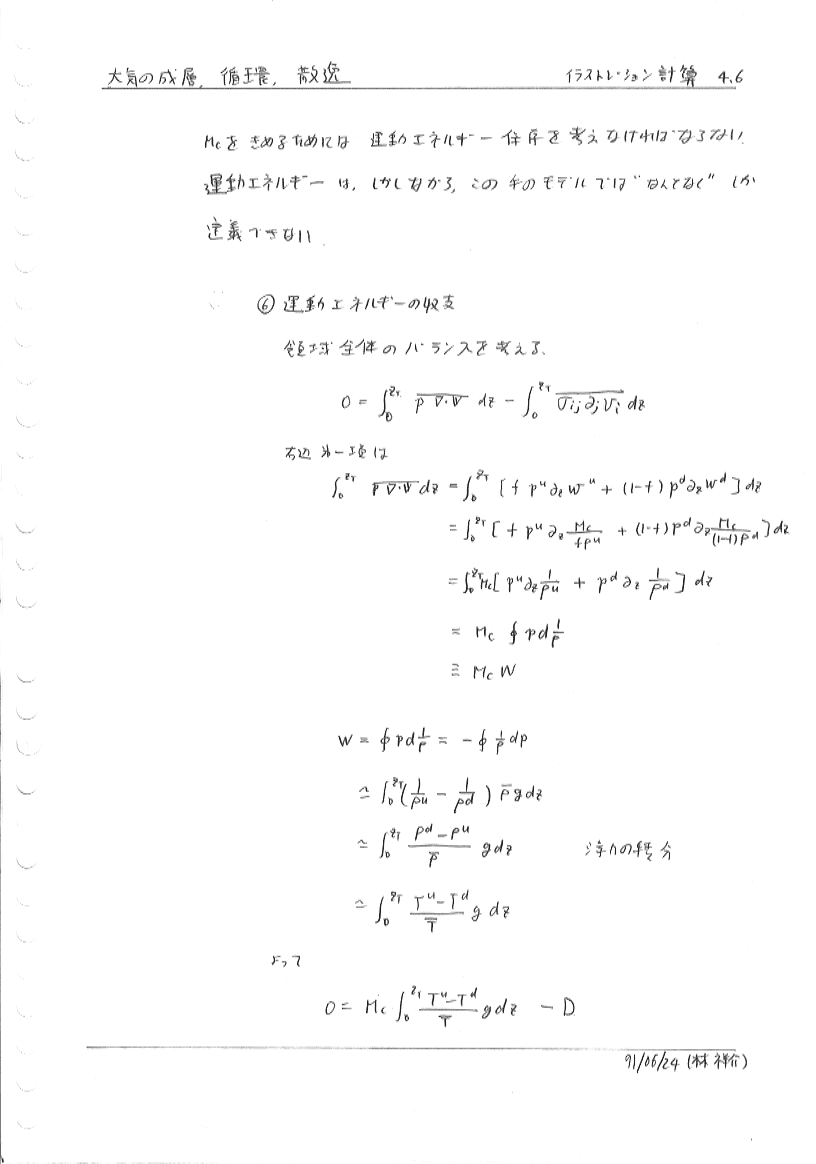 大気の成層, 循環, 散逸 イラストレーション計算 4.6
Mcをきめるためには 運動エネルギー保存を考えなければならない.
運動エネルギーは, しかしながら, この手のモデルでは"なんとなく"しか
定義できない.
⑥ 運動エネルギーの収支
領域全体のバランスを考える.
0 = ∫₀^{z_T} \overline{p ∇·𝐯} dz − ∫₀^{z_T} \overline{σij ∂j vi} dz
右辺第一項は
∫₀^{z_T} \overline{p ∇·𝐯} dz = ∫₀^{z_T} [ f p^u ∂z w^u + (1−f) p^d ∂z w^d ] dz
= ∫₀^{z_T} [ f p^u ∂z \frac{Mc}{fρ^u} + (1−f) p^d ∂z \frac{Mc}{(1−f)ρ^d} ] dz
= ∫₀^{z_T} Mc [ p^u ∂z \frac{1}{ρ^u} + p^d ∂z \frac{1}{ρ^d} ] dz
= Mc ∮ p d\frac{1}{ρ}
≡ Mc W
W = ∮ p d\frac{1}{ρ} = − ∮ \frac{1}{ρ} dp
≃ ∫₀^{z_T} ( \frac{1}{ρ^u} − \frac{1}{ρ^d} ) \overline{ρ} g dz
≃ ∫₀^{z_T} \frac{ρ^d − ρ^u}{\overline{ρ}} g dz 浮力の積分
≃ ∫₀^{z_T} \frac{T^u − T^d}{\overline{T}} g dz
よって
0 = Mc ∫₀^{z_T} \frac{T^u − T^d}{\overline{T}} g dz − D
91/06/24 (林 祥介)